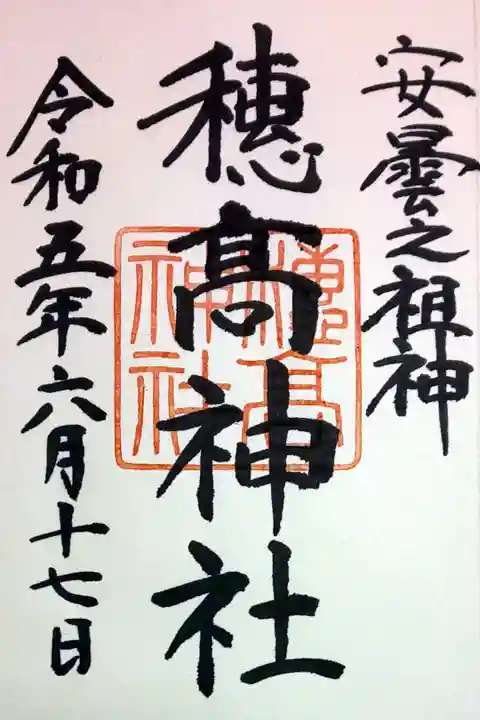 安曇之祖神
穂髙神社
穂髙神社
令和五年六月十七日